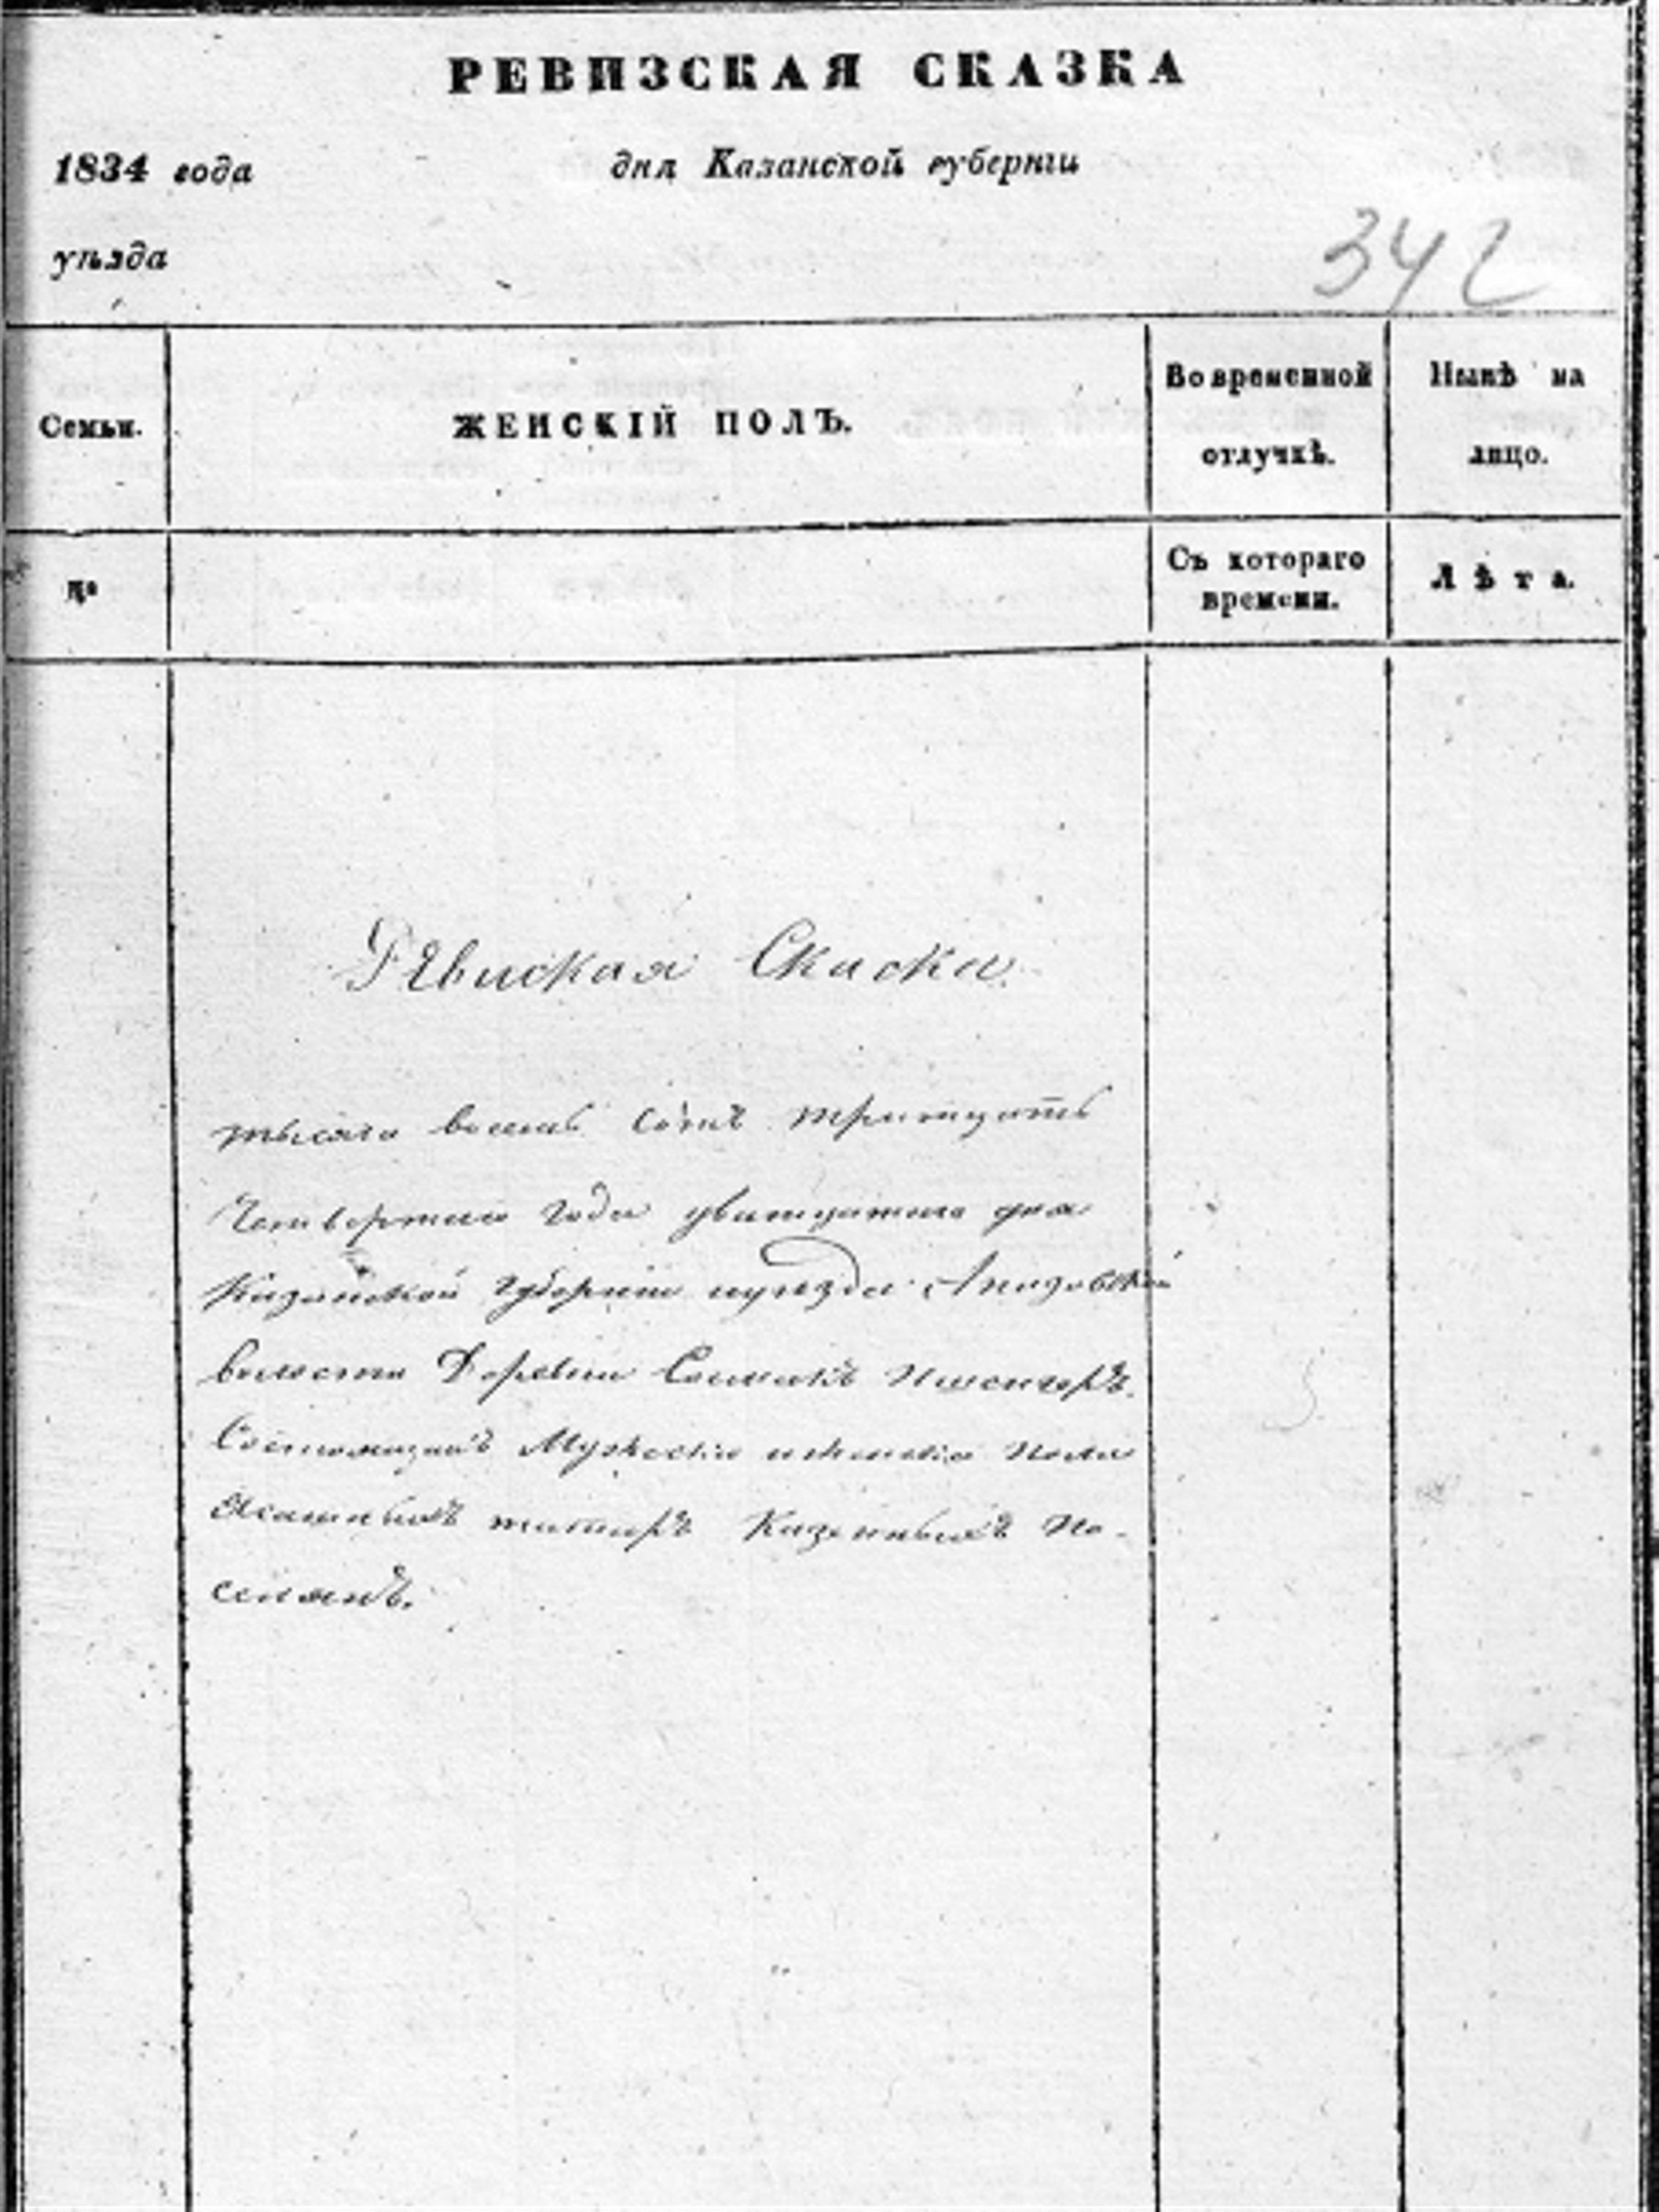 РЕВИЗСКАЯ СКАЗКА
1834 года дня Казанской губернiи
уѣзда
342
Семьи. ЖЕНСКIЙ ПОЛЪ. Во временной отлучкѣ. Нынѣ на лицо.
№ Съ котораго времени. Лѣта.
Ревиская Скаска
тысяча восемь сотъ тритцать
Четвертаго года
Казанской Губернiи иуѣзда
волости Деревни
Состоящихъ Мужеска иженска пола
Ясашныхъ татаръ Казенныхъ По-
селянъ.